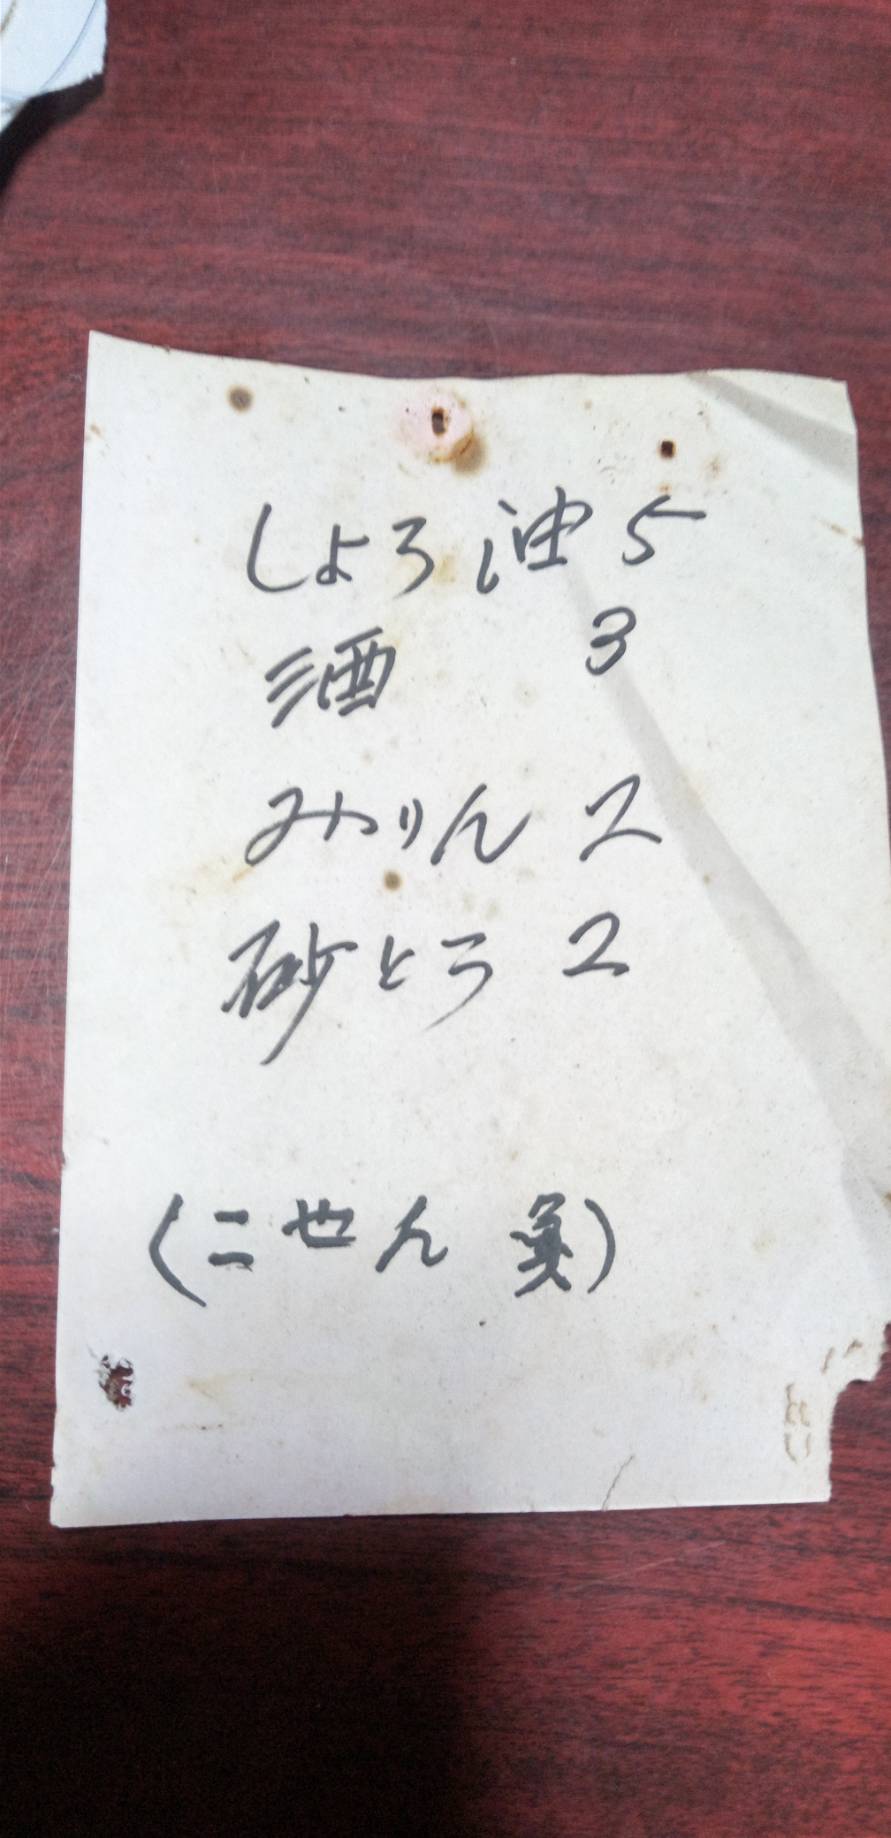 しょう油 5
酒 3
みりん 2
砂とう 2
(こせん